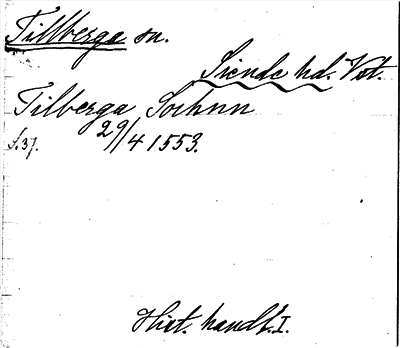 Tillberga sn.
Siende hd. Vst.
Tilberga Sochnn
s.37. 29/4 1553.
Hist. handl. I.